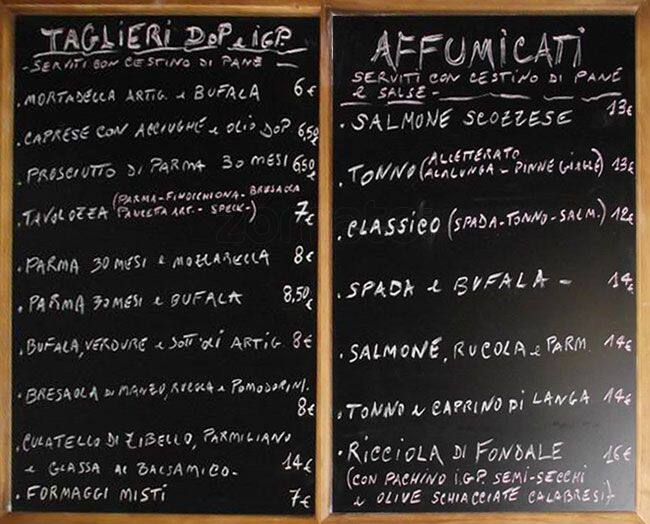 TAGLIERI DoP e iGP.
- SERVITI CON CESTINO DI PANE
. MORTADELLA ARTIG. e BUFALA 6€
. CAPRESE CON ACCIUGHE e OLIO DOP. 6,50€
. PROSCIUTTO DI PARMA 30 MESI 6,50€
. TAVOLOZZA (PARMA-FINOCCHIONA. BRESAOLA
PANCETTA ART. - SPECK-) 7€
. PARMA 30 MESI e MOZZARELLA 8€
. PARMA 30 MESI e BUFALA 8,50€
. BUFALA, VERDURE e SOTT'OLI ARTIG. 8€
. BRESAOLA DI MANZO, RUCOLA e POMODORINI.
8€
. CULATELLO DI ZIBELLO, PARMIGIANO
e GLASSA AL BALSAMICO- 14€
. FORMAGGI MISTI 7€
AFFUMICATI
SERVITI CON CESTINO DI PANE
e SALSE -
. SALMONE SCOZZESE 13€
. TONNO (ALLETTERATO
ALALUNGA - PINNE GIALLE) 13€
. CLASSICO (SPADA-TONNO-SALM.) 12€
. SPADA e BUFALA - 14€
. SALMONE, RUCOLA e PARM. 14€
. TONNO e CAPRINO DI LANGA 14€
. RICCIOLA DI FONDALE 16€
(CON PACHINO I.G.P. SEMI-SECCHI
e OLIVE SCHIACCIATE CALABRESI)